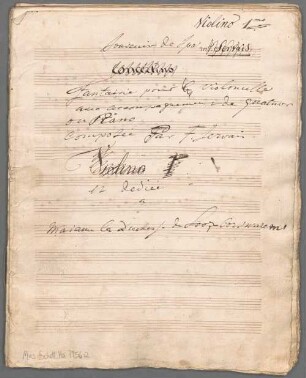 Violino 1mo
Souvenir de Spa Servais
Concertino
Fantaisie pour le violoncelle
avec accompagnement de quatuor
ou Piano
composée Par F. Servais
Violino 1
et dediée
a
Madame la Duchesse de